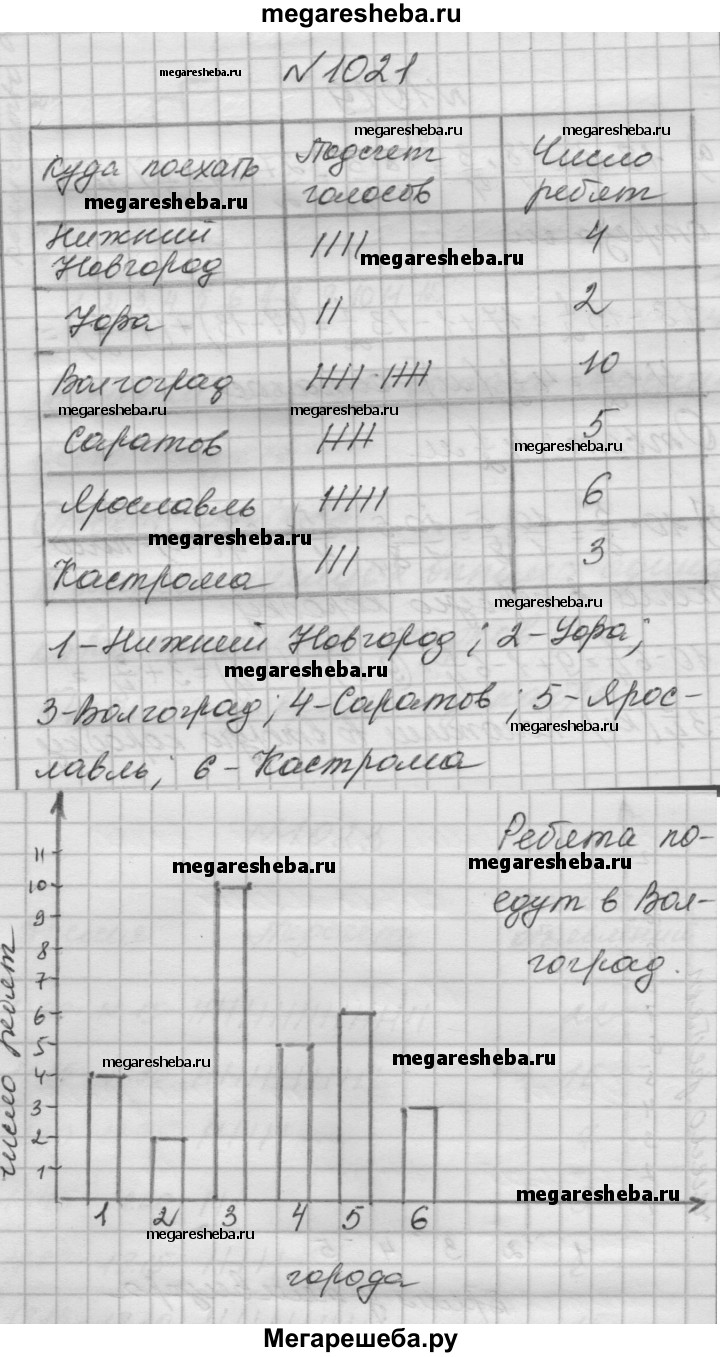 megaresheba.ru
№1021
megaresheba.ru
megaresheba.ru megaresheba.ru
Куда поехать Подсчет голосов Число ребят
megaresheba.ru
Нижний Новгород IIII 4
megaresheba.ru
Уфа II 2
Волгоград 10
megaresheba.ru megaresheba.ru
Саратов 5
megaresheba.ru
Ярославль 6
megaresheba.ru
Кастрома III 3
megaresheba.ru
1-Нижний Новгород; 2-Уфа;
megaresheba.ru
3-Волгоград; 4-Саратов; 5-Ярос-
megaresheba.ru
лавль; 6-Кастрома
Ребята по-
megaresheba.ru megaresheba.ru
едут в Вол-
гоград.
число ребят
11
10
9
8
7
6
5
4
3
2
1
megaresheba.ru megaresheba.ru
megaresheba.ru
1 2 3 4 5 6
megaresheba.ru
города
Мегарешеба.ру